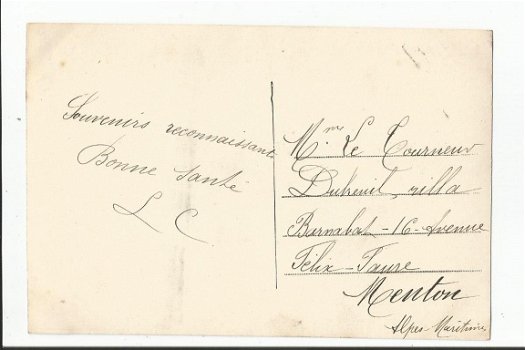 Souvenirs reconnaissants
Bonne Santé
L C
Mme Le Tourneur
Dutreuil, villa
Barnabat - 16 - Avenue
Félix - Faure
Menton
Alpes Maritimes